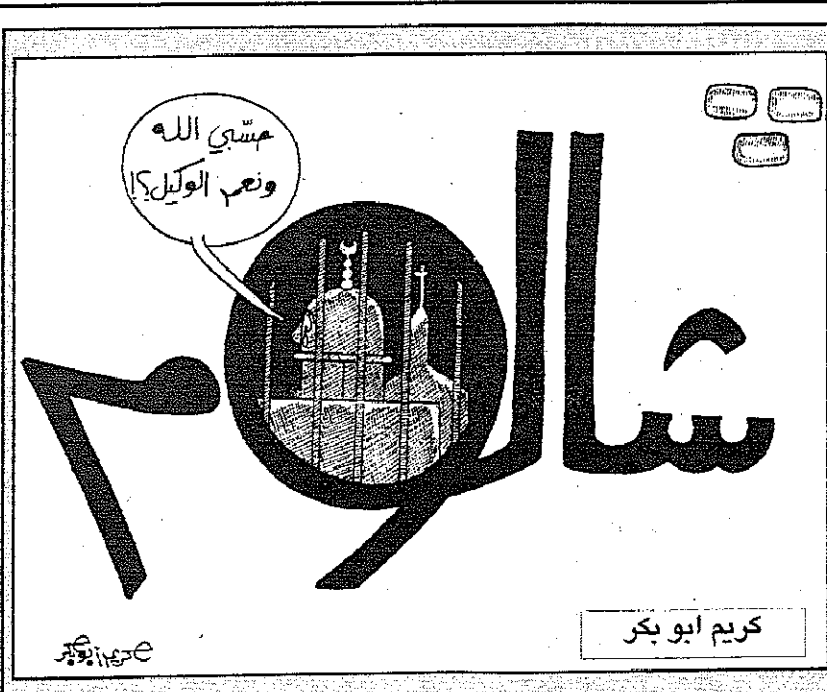 حسّبي الله
ونعم الوكيل؟!
شالوم
كريم ابو بكر
كريم أبو بكر